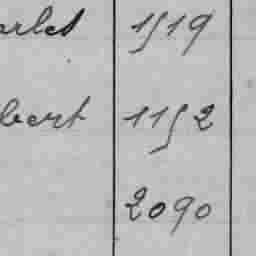 arles 1519
bert 1152
2090